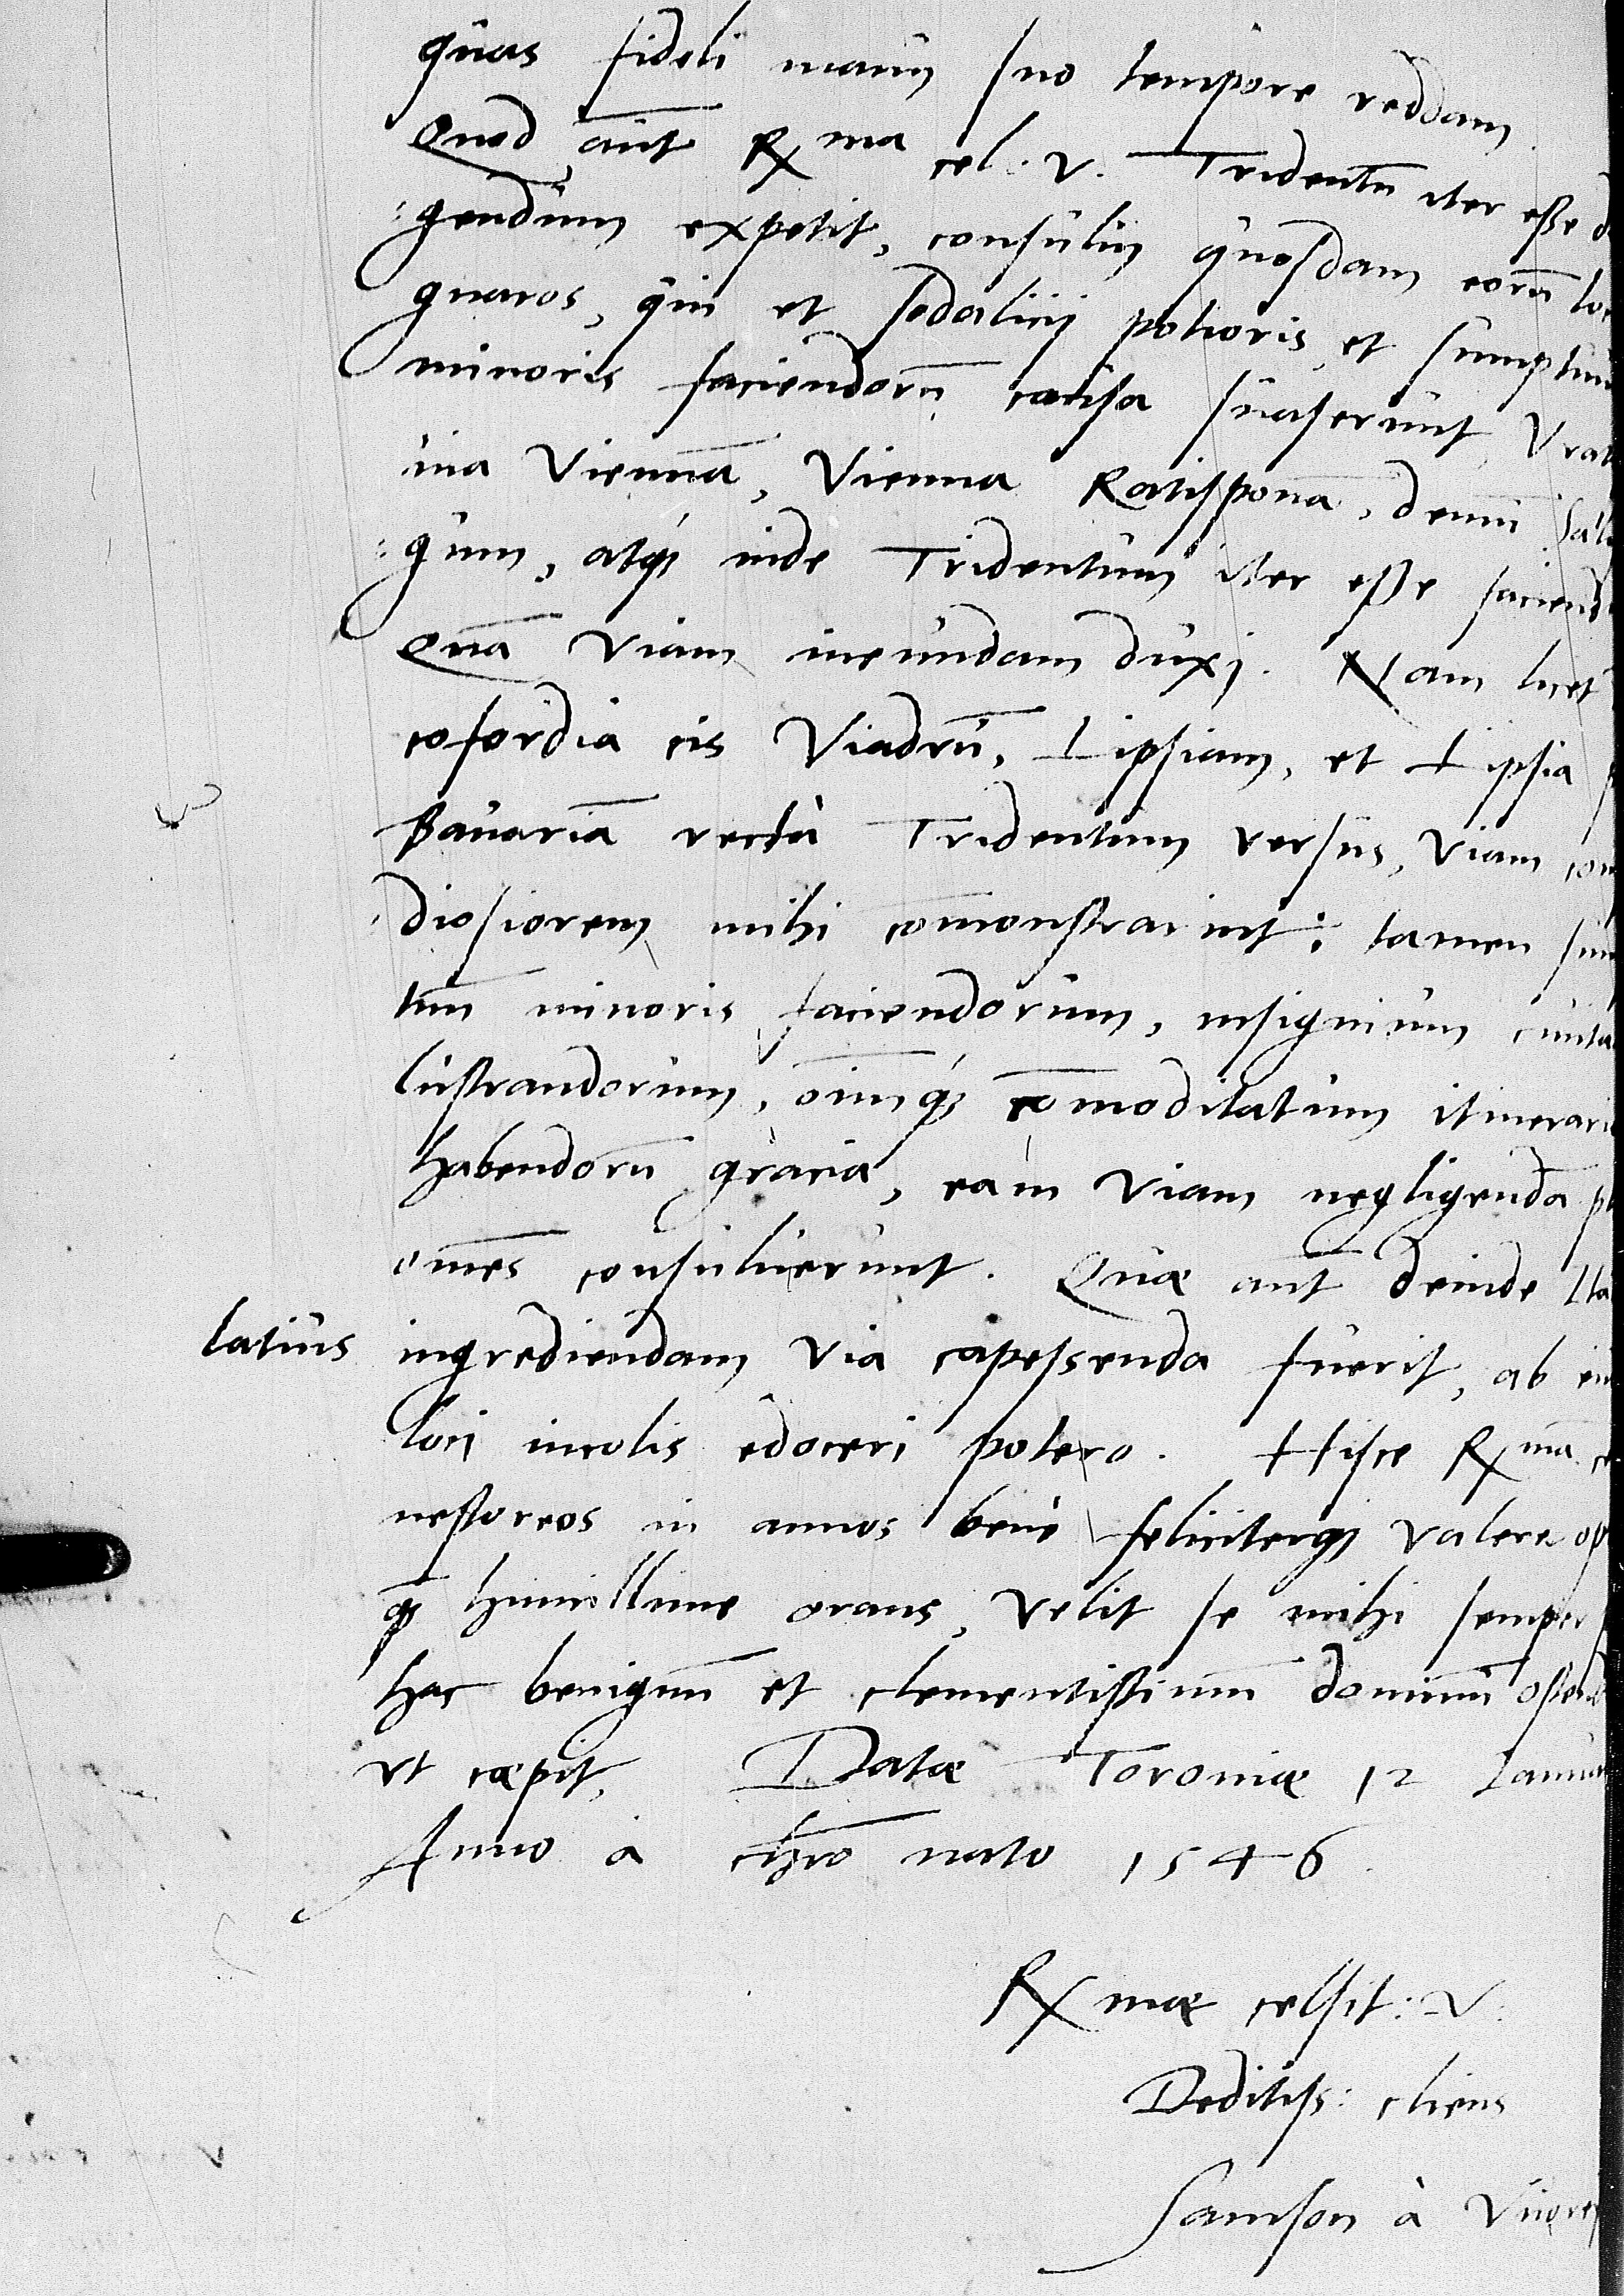 quas fideli manu suo tempore reddam
Quod aūt Rx ma cel: v. Tridentū iter esse d
:gendum expetit, consulūi quosdam eorū lo
gnaros, qui et sodalitij potioris et sumptuū
minoris faciendorū causa suaserunt Vrat
uia Viennā, Vienna Ratisponā, demū Sal
:gum, atq; inde Tridentum iter esse faciend
Quā viam ineundam duxj. Nam licet
cofordia cis Viadrū, Lipsiam, et Lipsia
Bauariā rectà Tridentum versus, viam com
diosiorem mihi comonstrarint: tamen sum
tuū minoris faciendorum, insignium ciuita
lustrandorum, oīmq; comoditatum itinerari
habendorū gracia, eam viam negligendā
omēs consuluerunt. Qua aūt deinde Ita
latius ingrediendam via capessenda fuerit, ab
loci incolis edoceri potero. Hisce Rx mā c
nestoreos in annos benè feliciterq; valere op
q; humillime orans, velit se mihi semper
hac benignū et clementissimum dominū ostend
vt cœpit. Datæ Toroniæ 12 Ianuar
Anno à chrō nato 1546.
Rx mæ celsit: v.
Deditiss: cliens
Samson à